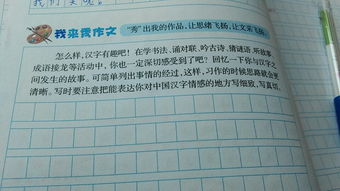 我们
我来秀作文 "秀"出我的作品,让思绪飞扬,让文采飞扬
怎么样,汉字有趣吧!在学书法、诵对联、吟古诗、猜谜语、听故事、
成语接龙等活动中,你也一定深切感受到了吧?回忆一下你与汉字之
间发生的故事。可简单列出事情的经过,这样,习作的时候思路就会更
清晰。写时要注意把能表达你对中国汉字情感的地方写细致,写真切。